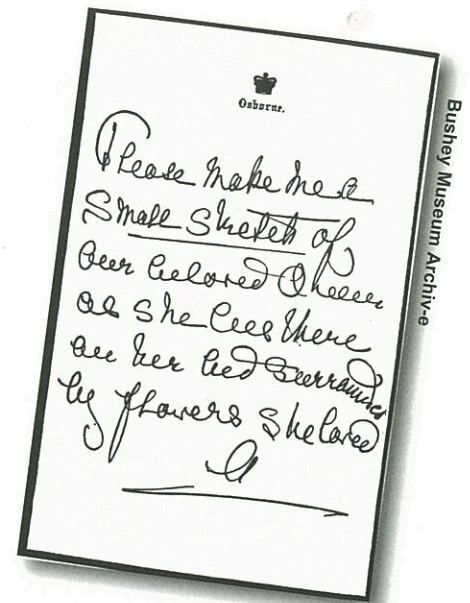 Osborne.
Please make me a
small sketch of
our beloved Queen
as she lies there
on her bed surrounded
by flowers she loved
A
Bushey Museum Archiv-e